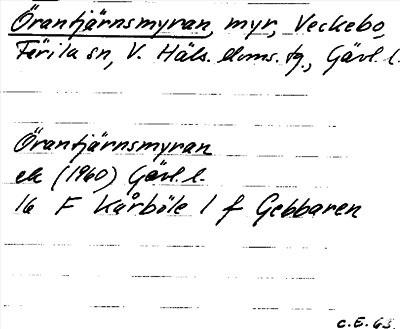 Örantjärnsmyran, myr, Veckebo,
Färila sn, V. Häls. doms. tg., Gävl. l.
Örantjärnsmyran
ek (1960) Gävl. l.
16 F Kårböle 1 f Gebbaren
C.E. 63.